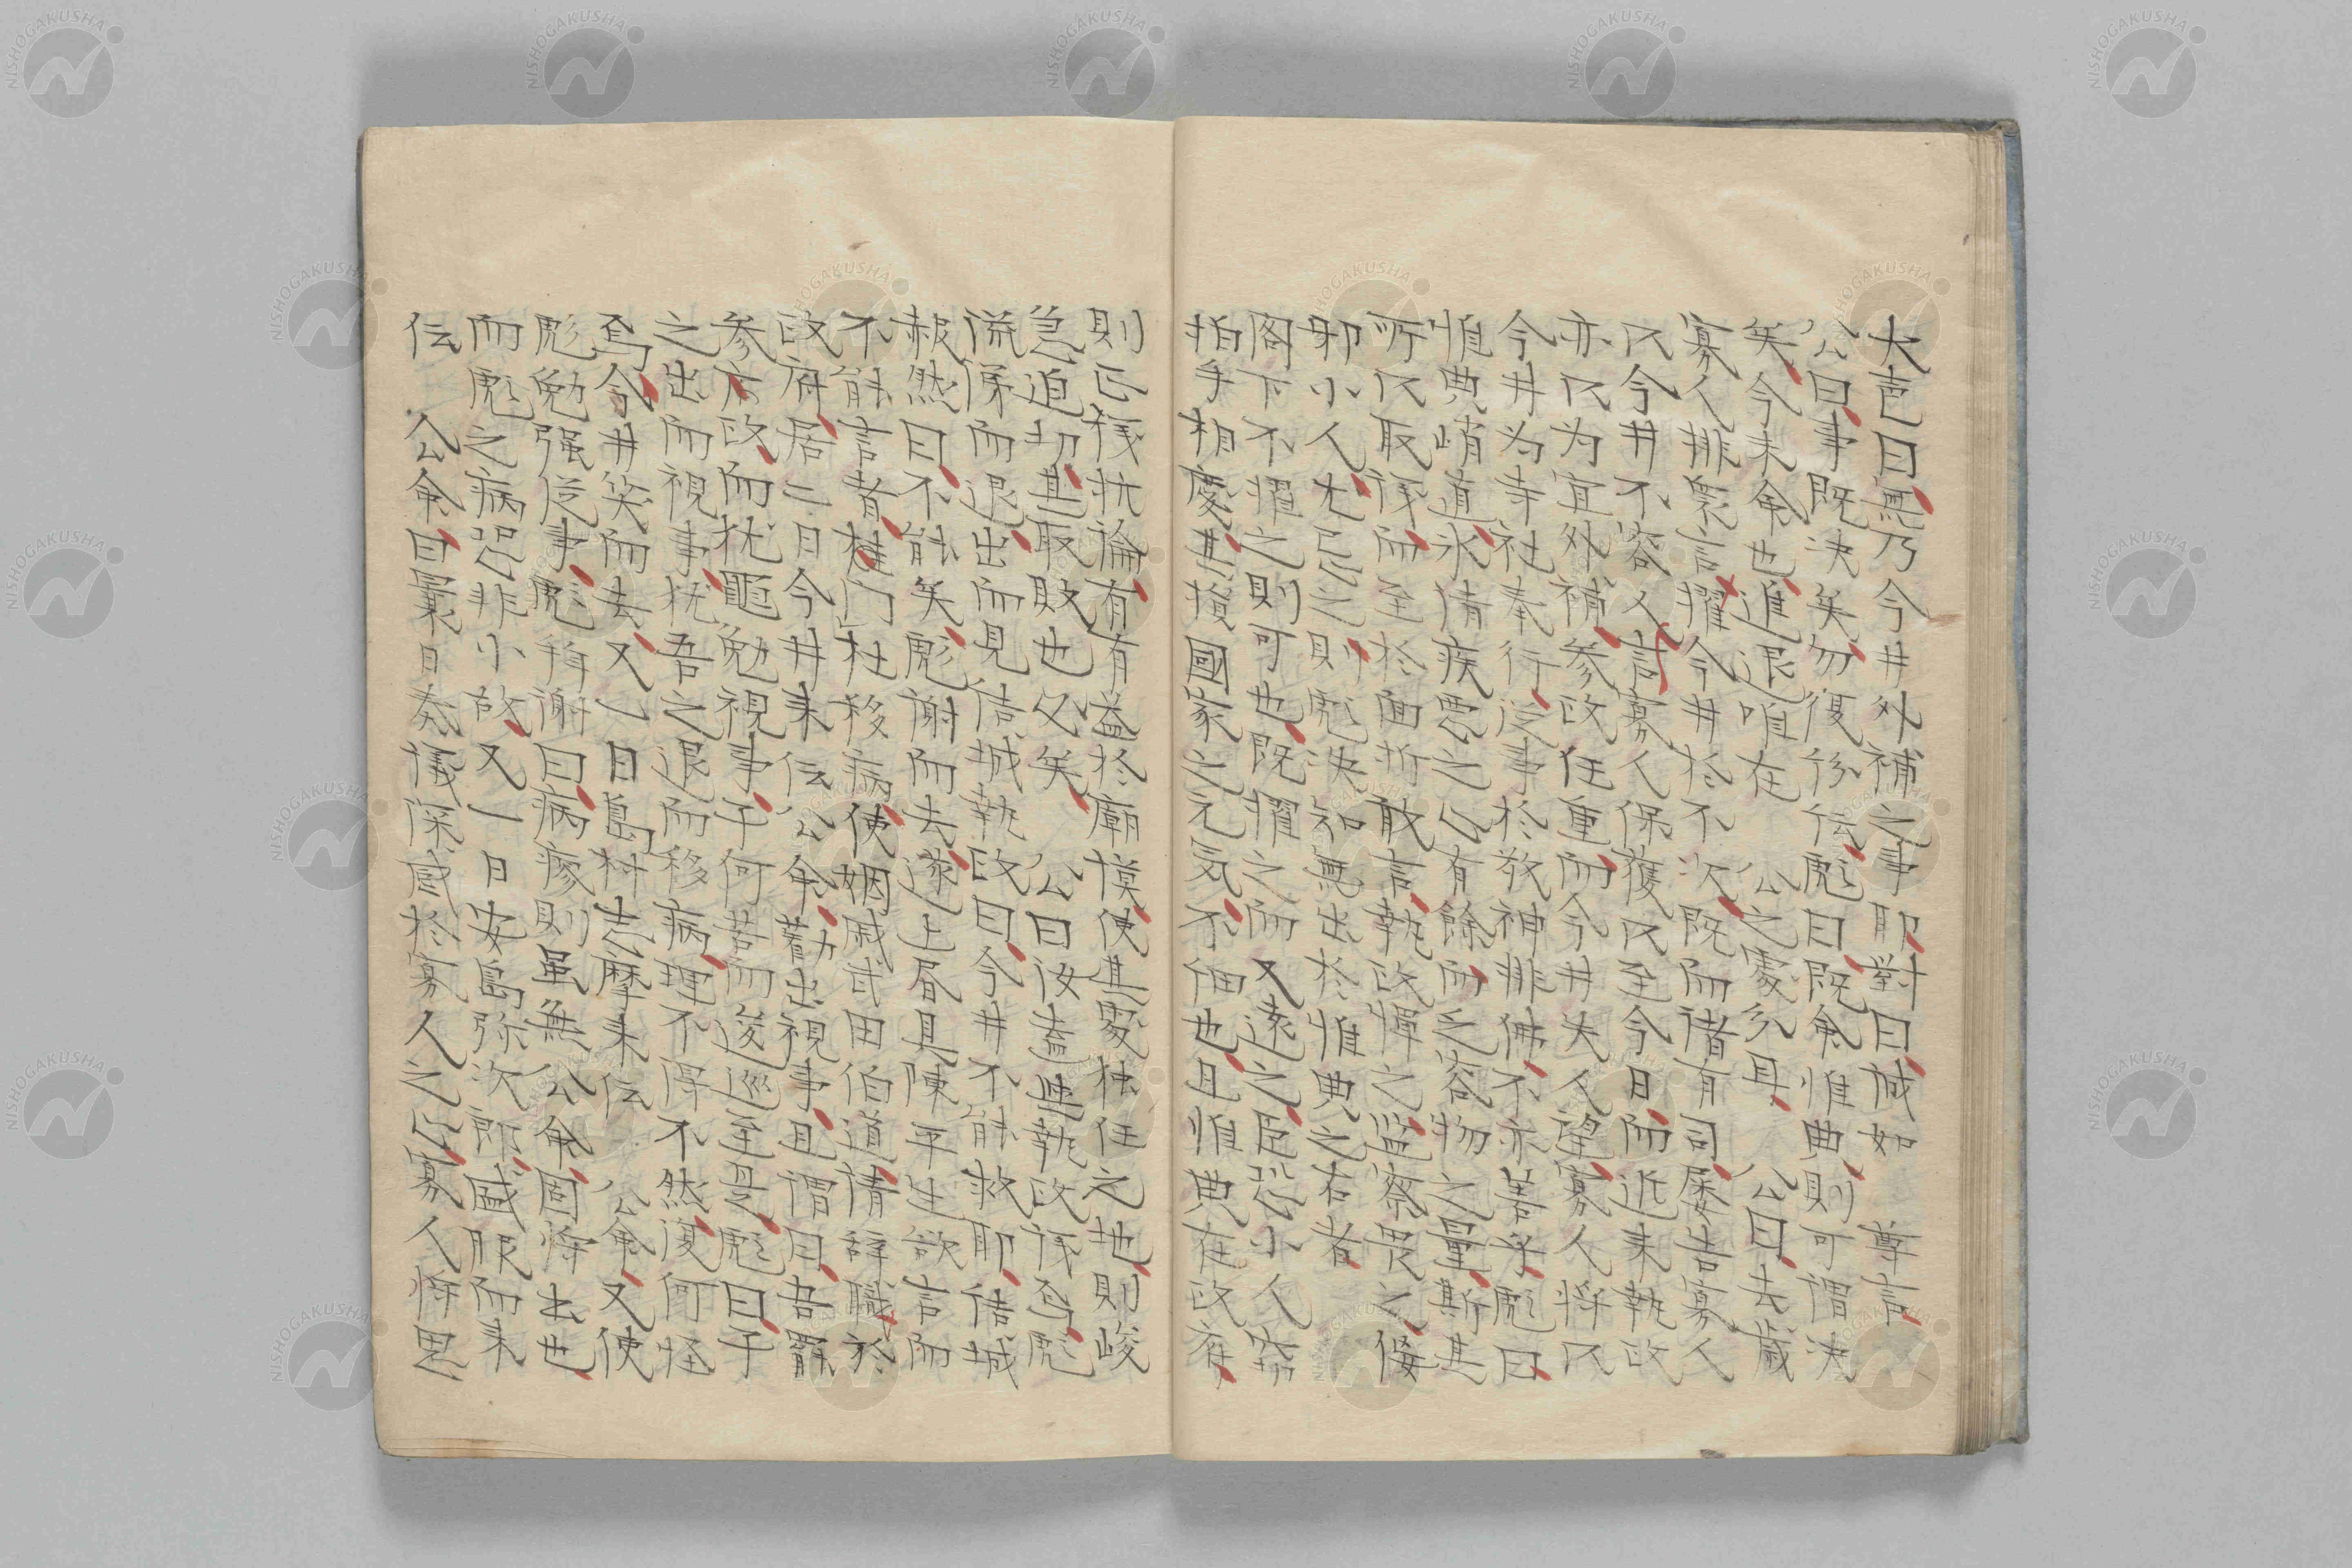 大邑曰無乃今井外補之事耶對曰誠如　尊言
公曰事既決矣勿復紛紜彪曰既命惟典則可謂決
矣今未命也進退唯在　公之處分耳　公曰去歳
寡人排衆言擢今井於不次既而諸有司屡告寡人
以今井不容人言寡人保護以至今日而近来執政
亦以为宜外補参政任重而今井失人望寡人将以
今井为寺社奉行従事於敬神排佛不亦善乎彪曰
惟典峭直氷清疾悪之心有餘而乏容物之量斯其
所以取誹而至於面折敢言執政憚之監察畏之
邪小人尤忌之則彪決知無出於惟典之右者
閣下不擢之則可也既擢之而又遠之臣恐小人
拍手相慶其損國家之元気不細也且惟典在政府
則正議抗論有益於廟謨使其處独任之地則峻
急迫切甚取敗也必矣　公曰汝盍与執政議焉彪
而退出而見結城執政曰今井不能救耶結城
赧然曰不能矣彪謝而去遂上書具陳平生欲言而
不能言者杜門移病使姻戚武田伯道倩辞職於
政府居二日今井来伝　公命勸出視事且謂曰吾罷
参政而猶黽勉視事子何苦而逡巡至是彪曰子
之出而視事猶吾之退而移病理不得不然復何怪
焉今井笑而去又一日島村志摩来伝　公命又使
彪勉强従事彪拜謝曰病瘳則虽無　公命固将出也
而彪之病恐非小故又一日安島弥次郎盛服而来
伝　公命曰曩日奏議深感於寡人之心寡人将思